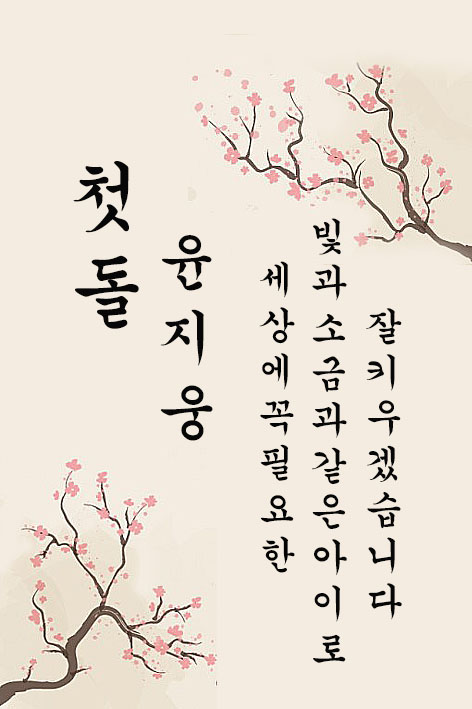 첫돌
윤지웅
세상에꼭필요한
빛과소금과같은아이로
잘키우겠습니다